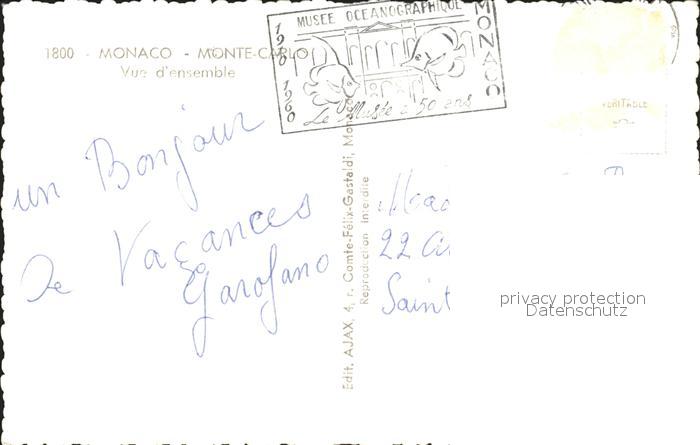 1800 - MONACO - MONTE-CARLO
Vue d'ensemble
MUSEE OCEANOGRAPHIQUE
MONACO
1910 1960
Le Musée a 50 ans
VERITABLE
un Bonjour
De Vacances
Garofano
Edit. AJAX, 4, r. Comte-Félix-Gastaldi, Monaco
Reproduction interdite
22
Saint
privacy protection
Datenschutz